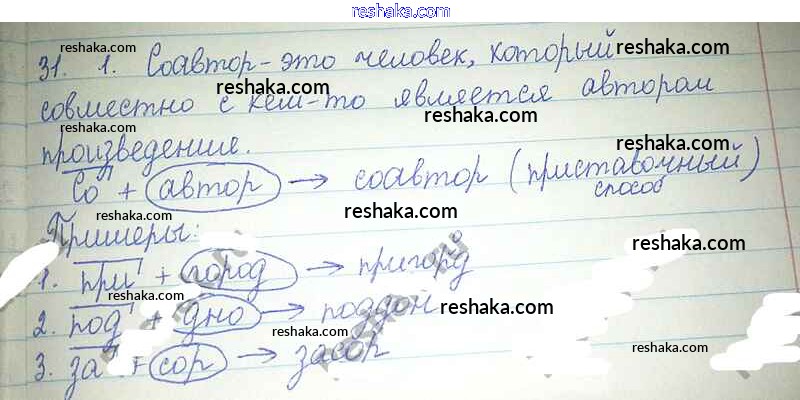 reshaka.com
31. 1. Соавтор - это человек, который
совместно с кем-то является автором
произведение.
Со + автор → соавтор (приставочный)
способ
Примеры:
1. при + город → пригорд
2. под + дно → поддон
3. за + сор → засор
reshaka.com
reshaka.com
reshaka.com
reshaka.com
reshaka.com
reshaka.com
reshaka.com
reshaka.com
reshaka.com
reshaka.com
reshaka.com
reshaka.com